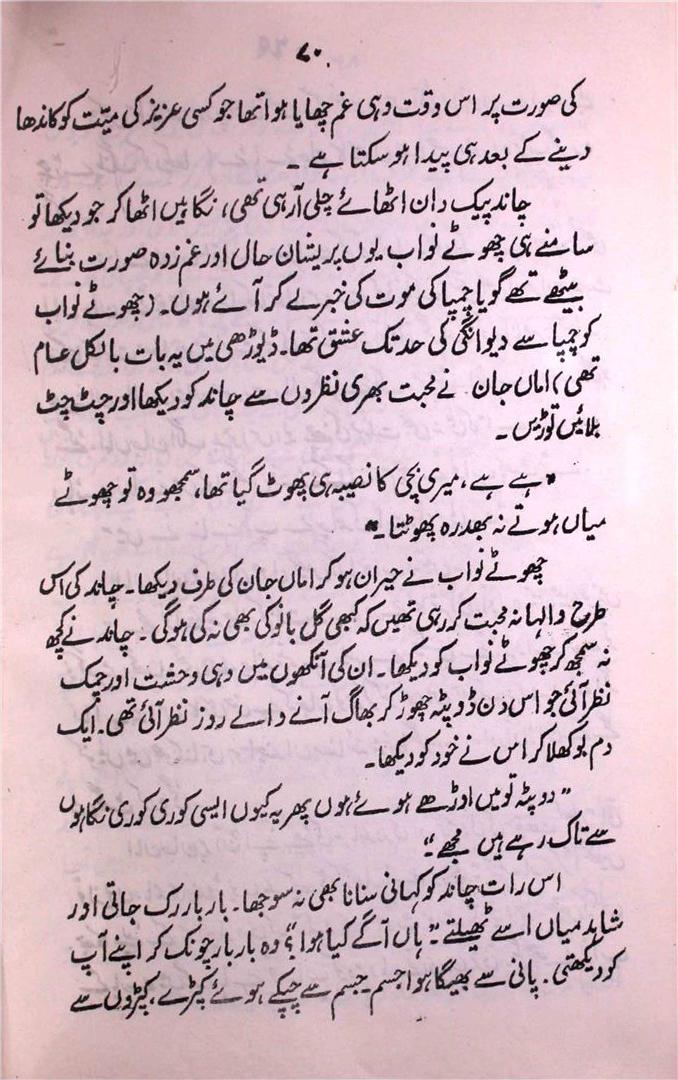 ۷۰
کی صورت پر اس وقت وہی غم چھایا ہوا تھا جو کسی عزیز کی میّت کو کاندھا
دینے کے بعد ہی پیدا ہو سکتا ہے ۔
چاند پیک دان اٹھائے چلی آرہی تھی، نگاہیں اٹھا کر جو دیکھا تو
سامنے ہی چھوٹے نواب یوں پریشان حال اور غم زدہ صورت بنائے
بیٹھے تھے گویا چمپا کی موت کی خبر لے کر آئے ہوں۔ (چھوٹے نواب
کو چمپا سے دیوانگی کی حد تک عشق تھا۔ ڈیوڑھی میں یہ بات بالکل عام
تھی) اماں جان نے محبت بھری نظروں سے چاند کو دیکھا اور چٹ چٹ
بلائیں توڑیں ۔
"ہے ہے، میری بچی کا نصیبہ ہی پھوٹ گیا تھا، سمجھو وہ تو چھوٹے
میاں ہوتے نہ بھدرہ پھوٹتا ۔"
چھوٹے نواب نے حیران ہو کر اماں جان کی طرف دیکھا۔ چاند کی اس
طرح والہانہ محبت کر رہی تھیں کہ کبھی گل بانو کی بھی نہ کی ہوگی ۔ چاند نے کچھ
نہ سمجھ کر چھوٹے نواب کو دیکھا۔ ان کی آنکھوں میں وہی وحشت اور چمک
نظر آئی جو اس دن ڈوپٹہ چھوڑ کر بھاگ آنے والے روز نظر آئی تھی۔ ایک
دم بوکھلا کر اس نے خود کو دیکھا۔
"دوپٹہ تو میں اوڑھے ہوئے ہوں پھر یہ کیوں ایسی کوری کوری نگاہوں
سے تاک رہے ہیں مجھے ۔"
اس رات چاند کو کہانی سنانا بھی نہ سوجھا۔ بار بار رک جاتی اور
شاہد میاں اسے ٹھیلتے ۔ "ہاں آگے کیا ہوا؟" وہ بار بار چونک کر اپنے آپ
کو دیکھتی ۔ پانی سے بھیگا ہوا جسم۔ جسم سے چپکے ہوئے کپڑے، کپڑوں سے